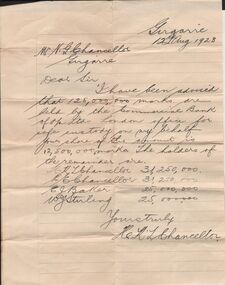 Girgarre
12 Aug 1928
Mr N G Chancellor
Girgarre
Dear Sir
I have been advised
that 125,000,000 marks are
held by the Commercial Bank
of London office for
safe custody on my behalf
your share of the amount is
12,500,000 marks The holders of
the remainder are.
Chancellor 31,250,000
Chancellor 31,250,000
Baker 25,000,000
Stirling 25,000000
Yours truly
Chancellor